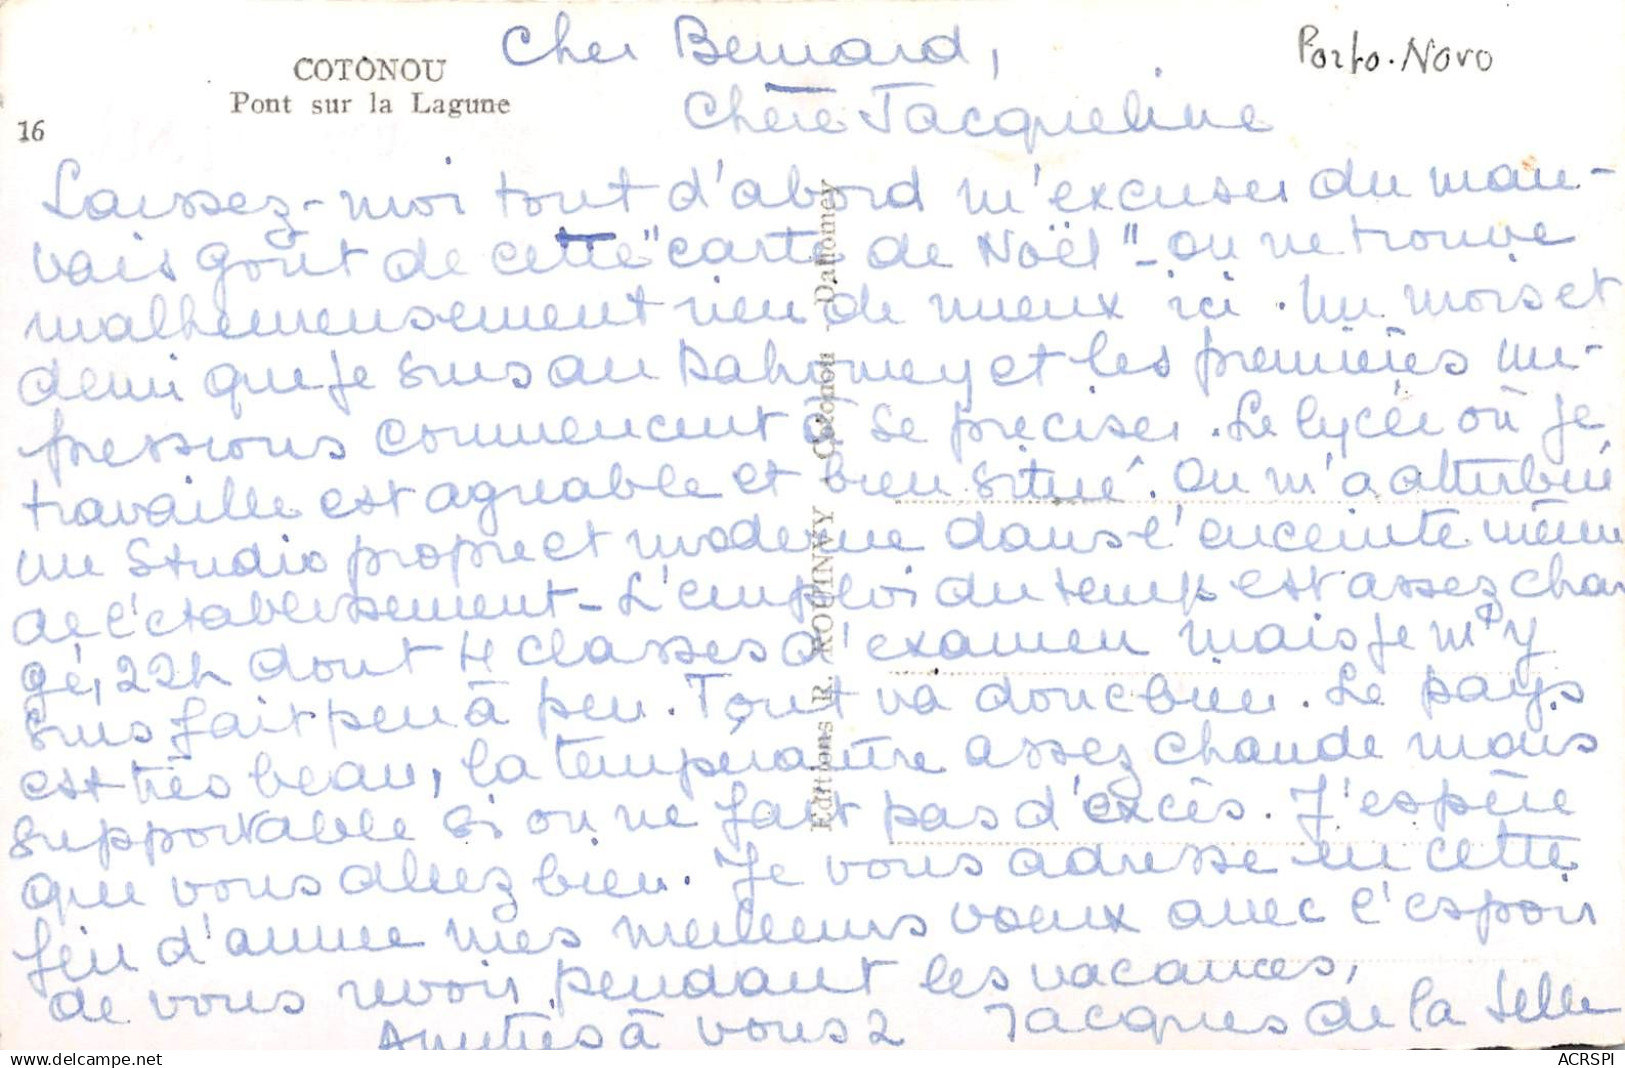 COTONOU
Pont sur la Lagune
16
Porto-Novo
Cher Bernard,
Chère Jacqueline
Laissez-moi tout d'abord m'excuser du mau-
vais goût de cette "carte de Noël" - on ne trouve
malheureusement rien de mieux ici. Un mois et
demi que je suis au Dahomey et les premières im-
pressions commencent à se préciser. Le lycée où je
travaille est agréable et bien situé. On m'a attribué
un studio propre et moderne dans l'enceinte même
de l'établissement - L'emploi du temps est assez char
gé, 22h dont 4 classes d'examen mais je m'y
suis fait peu à peu. Tout va donc bien. Le pays
est très beau, la température assez chaude mais
supportable si on ne fait pas d'excès. J'espère
que vous allez bien. Je vous adresse en cette
fin d'année mes meilleurs vœux avec l'espoir
de vous revoir pendant les vacances,
Amitiés à vous 2 Jacques de la Selle
Editions R. ROUINVY - Cotonou - Dahomey
delcampe.net
ACRSPI